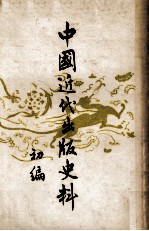 中國近代出版史料
初編